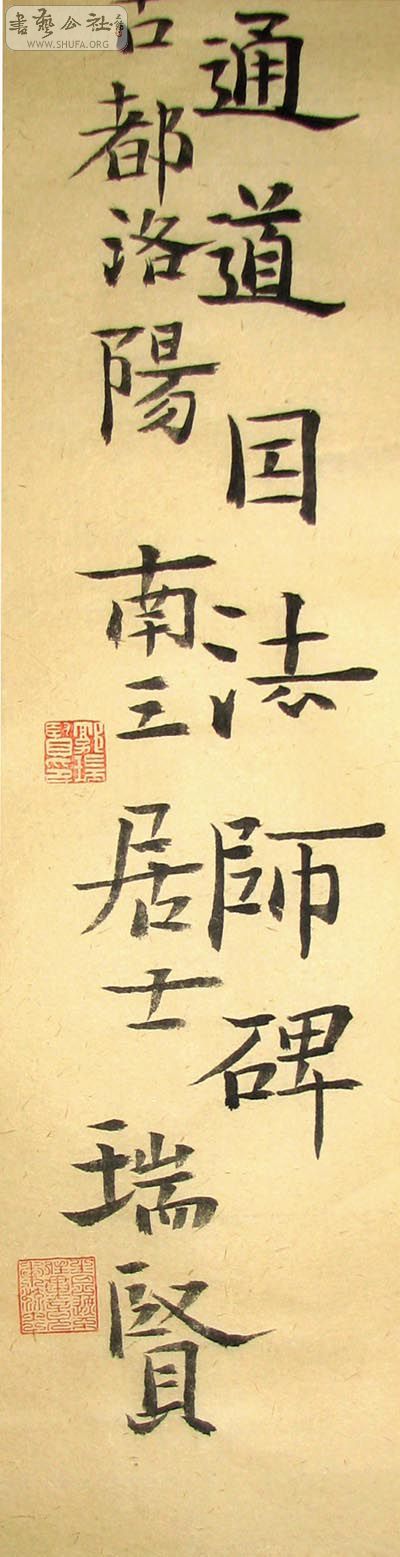 書藝公社
WWW.SHUFA.ORG
通道因法師碑
古都洛陽南三居士瑞賢